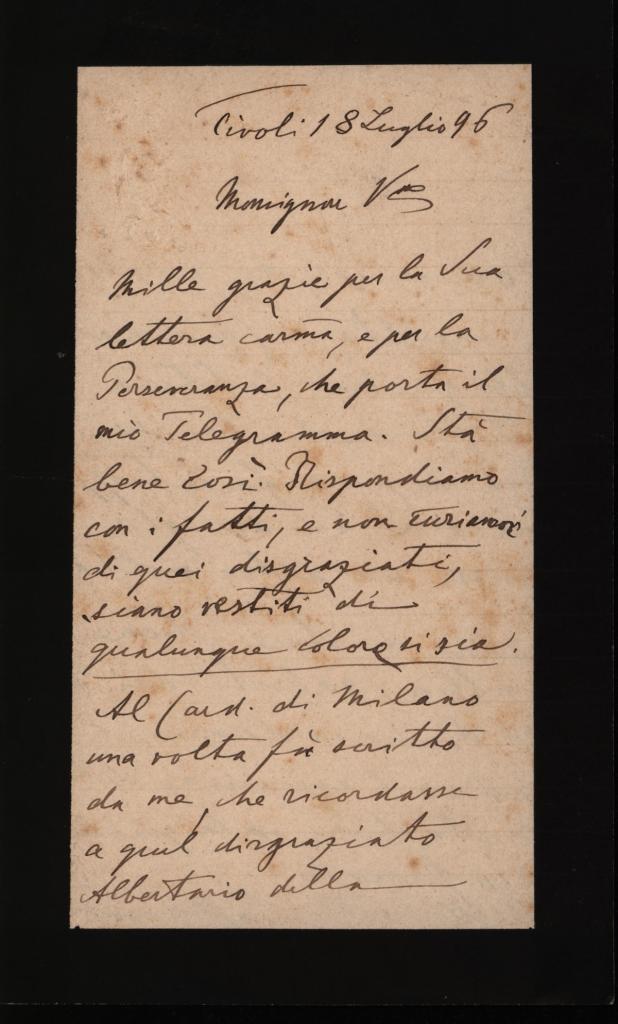 Tivoli 18 Luglio 96
Monsignore
Mille grazie per la Sua
lettera carma, e per la
Perseveranza, che porta il
mio Telegramma. Stà
bene così. Rispondiamo
con i fatti, e non curiamoci
di quei disgraziati,
siano vestiti di
qualunque colore si sia.
Al Card. di Milano
una volta fù scritto
da me, che ricordasse
a quel disgraziato
Albertario della